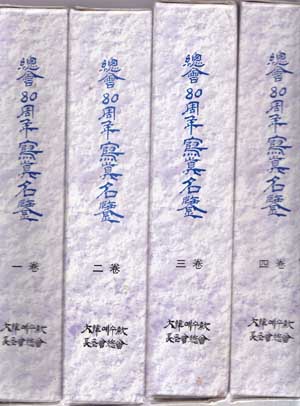 總會80周年寫眞名鑒
一卷
大韓예수敎
長老會總會
總會80周年寫眞名鑒
二卷
大韓예수敎
長老會總會
總會80周年寫眞名鑒
三卷
大韓예수敎
長老會總會
總會80周年寫眞名鑒
四卷
大韓예수敎
長老會總會